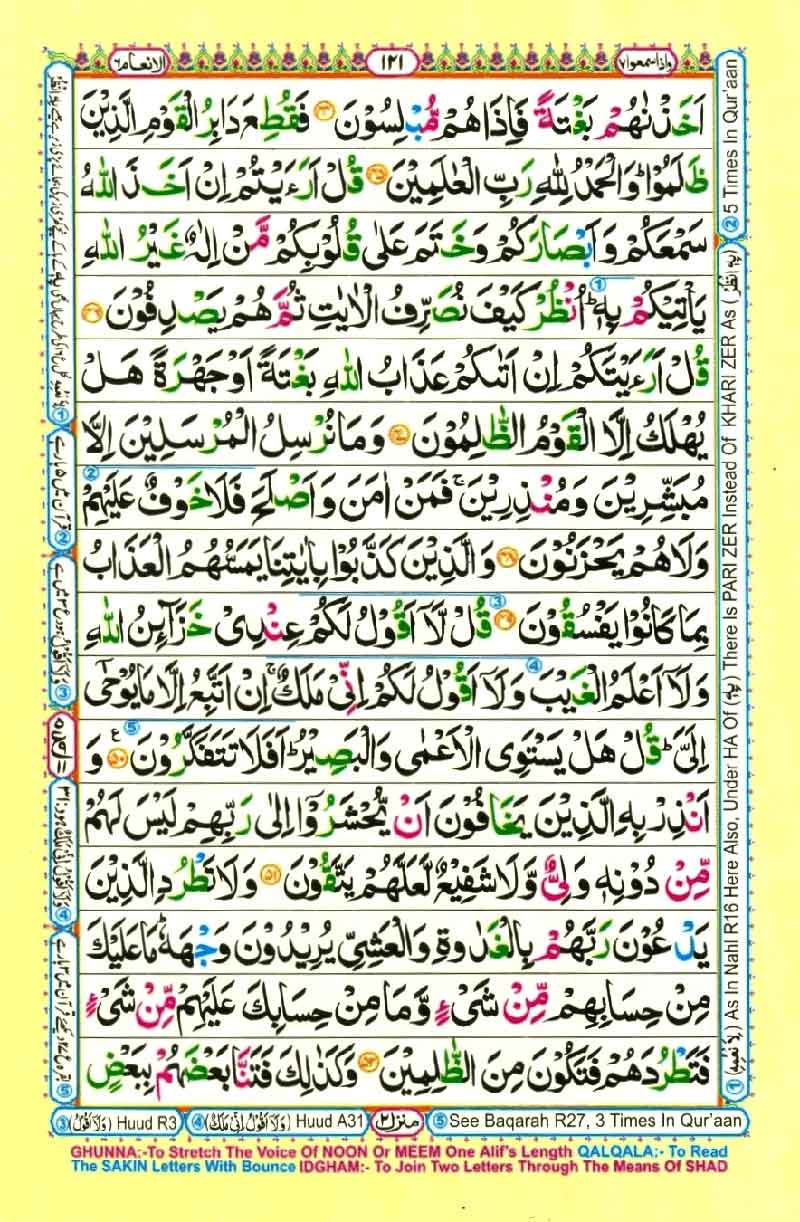 واذا سمعوا ۷
۱۲۱
الانعام ٦
اَخَذْنٰهُمْ بَغْتَةً فَاِذَا هُمْ مُّبْلِسُوْنَ ۴۴ فَقُطِعَ دَابِرُ الْقَوْمِ الَّذِيْنَ
ظَلَمُوْا ؕ وَالْحَمْدُ لِلّٰهِ رَبِّ الْعٰلَمِيْنَ ۴۵ قُلْ اَرَءَيْتُمْ اِنْ اَخَذَ اللّٰهُ
سَمْعَكُمْ وَاَبْصَارَكُمْ وَخَتَمَ عَلٰى قُلُوْبِكُمْ مَّنْ اِلٰهٌ غَيْرُ اللّٰهِ
يَاْتِيْكُمْ بِهٖ ؕ اُنْظُرْ كَيْفَ نُصَرِّفُ الْاٰيٰتِ ثُمَّ هُمْ يَصْدِفُوْنَ ۴۶
قُلْ اَرَءَيْتَكُمْ اِنْ اَتٰىكُمْ عَذَابُ اللّٰهِ بَغْتَةً اَوْ جَهْرَةً هَلْ
يُهْلَكُ اِلَّا الْقَوْمُ الظّٰلِمُوْنَ ۴۷ وَمَا نُرْسِلُ الْمُرْسَلِيْنَ اِلَّا
مُبَشِّرِيْنَ وَمُنْذِرِيْنَ ۚ فَمَنْ اٰمَنَ وَاَصْلَحَ فَلَا خَوْفٌ عَلَيْهِمْ
وَلَا هُمْ يَحْزَنُوْنَ ۴۸ وَالَّذِيْنَ كَذَّبُوْا بِاٰيٰتِنَا يَمَسُّهُمُ الْعَذَابُ
بِمَا كَانُوْا يَفْسُقُوْنَ ۴۹ قُلْ لَّاۤ اَقُوْلُ لَكُمْ عِنْدِىْ خَزَآئِنُ اللّٰهِ
وَلَاۤ اَعْلَمُ الْغَيْبَ وَلَاۤ اَقُوْلُ لَكُمْ اِنِّىْ مَلَكٌ ۚ اِنْ اَتَّبِعُ اِلَّا مَا يُوْحٰۤى
اِلَىَّ ؕ قُلْ هَلْ يَسْتَوِى الْاَعْمٰى وَالْبَصِيْرُ ؕ اَفَلَا تَتَفَكَّرُوْنَ ۵۰ وَ
اَنْذِرْ بِهِ الَّذِيْنَ يَخَافُوْنَ اَنْ يُّحْشَرُوْۤا اِلٰى رَبِّهِمْ لَيْسَ لَهُمْ
مِّنْ دُوْنِهٖ وَلِىٌّ وَّلَا شَفِيْعٌ لَّعَلَّهُمْ يَتَّقُوْنَ ۵۱ وَلَا تَطْرُدِ الَّذِيْنَ
يَدْعُوْنَ رَبَّهُمْ بِالْغَدٰوةِ وَالْعَشِىِّ يُرِيْدُوْنَ وَجْهَهٗ ؕ مَا عَلَيْكَ
مِنْ حِسَابِهِمْ مِّنْ شَىْءٍ وَّمَا مِنْ حِسَابِكَ عَلَيْهِمْ مِّنْ شَىْءٍ
فَتَطْرُدَهُمْ فَتَكُوْنَ مِنَ الظّٰلِمِيْنَ ۵۲ وَكَذٰلِكَ فَتَنَّا بَعْضَهُمْ بِبَعْضٍ
① As In Nahl R16 Here Also, Under HA Of (بِهٖ) There Is PARI ZER Instead Of KHARI ZER As (بِهِ انْظُرْ) ② 5 Times In Qur'aan
③ (وَلَا اَقُوْلُ) Huud R3
④ (وَلَا اَقُوْلُ اِنِّىْ مَلَكٌ) Huud A31
منزل ۲
⑤ See Baqarah R27, 3 Times In Qur'aan
GHUNNA:-To Stretch The Voice Of NOON Or MEEM One Alif's Length QALQALA:- To Read
The SAKIN Letters With Bounce IDGHAM:- To Join Two Letters Through The Means Of SHAD